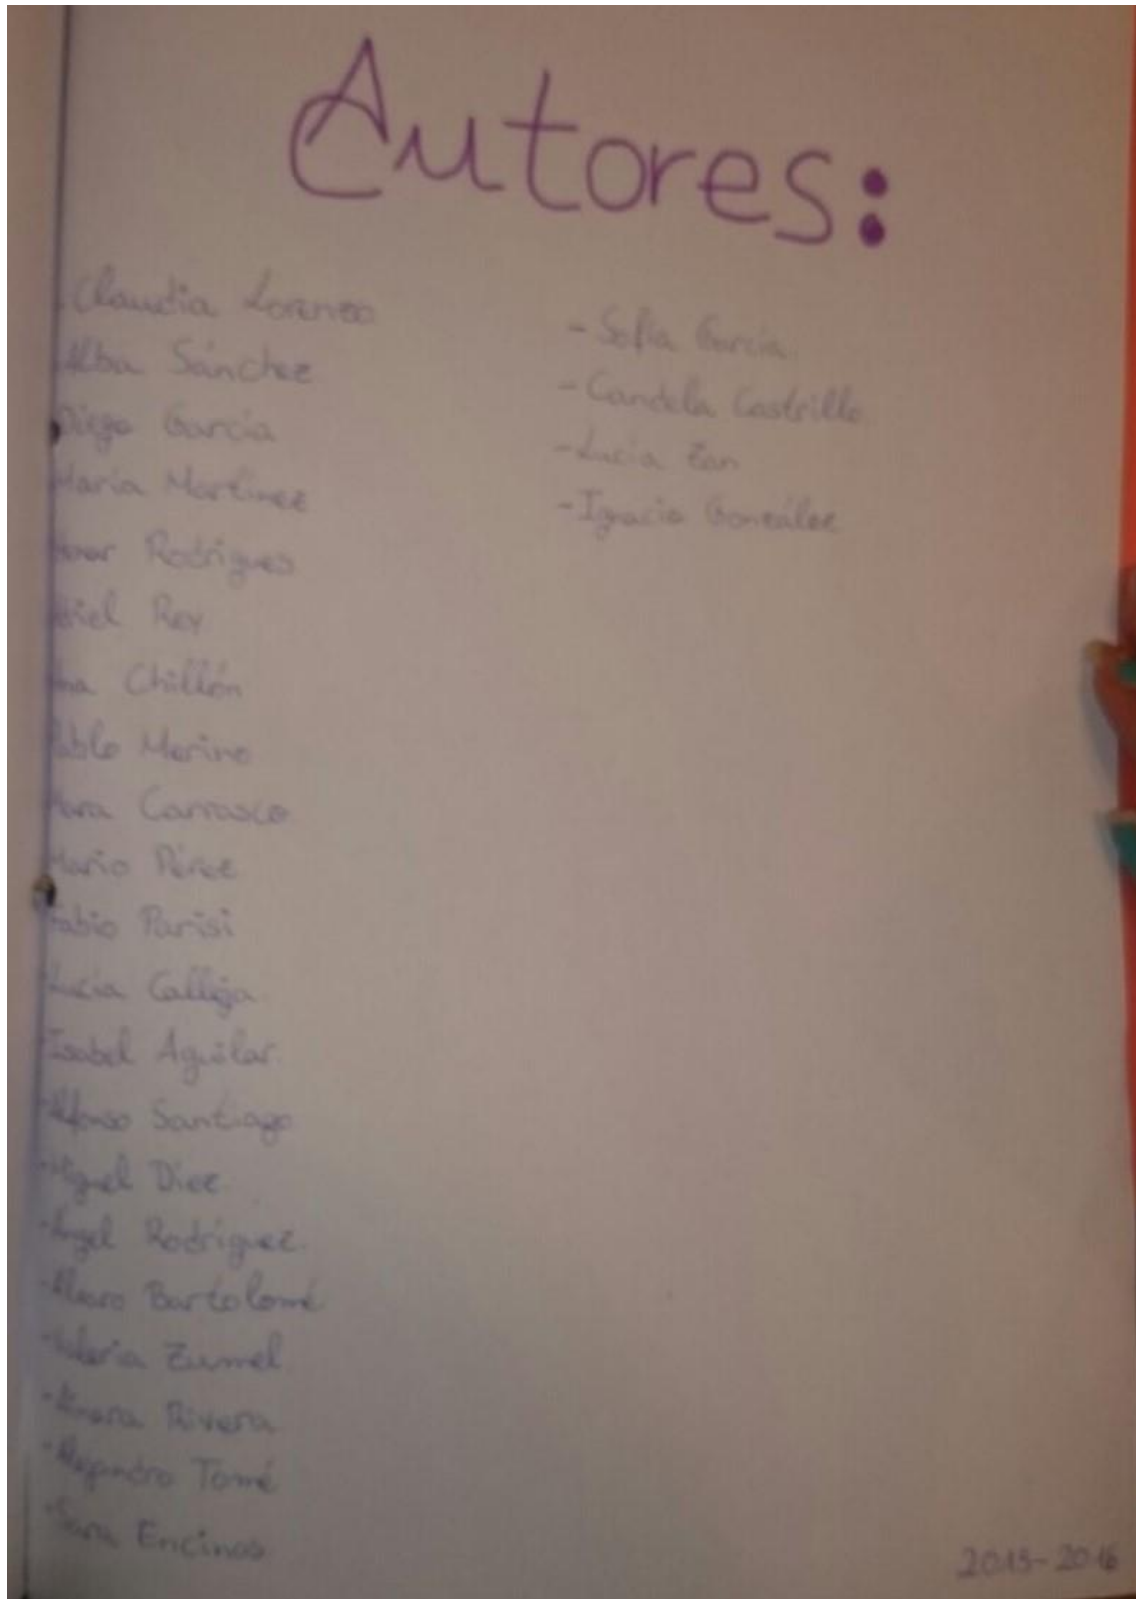 Autores:
Claudia Lorenzo
Alba Sánchez
Diego García
María Martínez
Rodrigues
Rey
Chillón
Pablo Merino
Carrasco
Mario Pérez
Fabio Parisi
Lucía Calleja
Isabel Aguilar.
-Alfonso Santiago
-Miguel Díez
-Ángel Rodríguez.
-Álvaro Bartolomé
-Valeria Zumel
Rivera
-Alejandro Tomé
-Sara Encinas
- Sofía García
- Candela Castrillo
- Lucía Zan
- Ignacio González
2015-2016